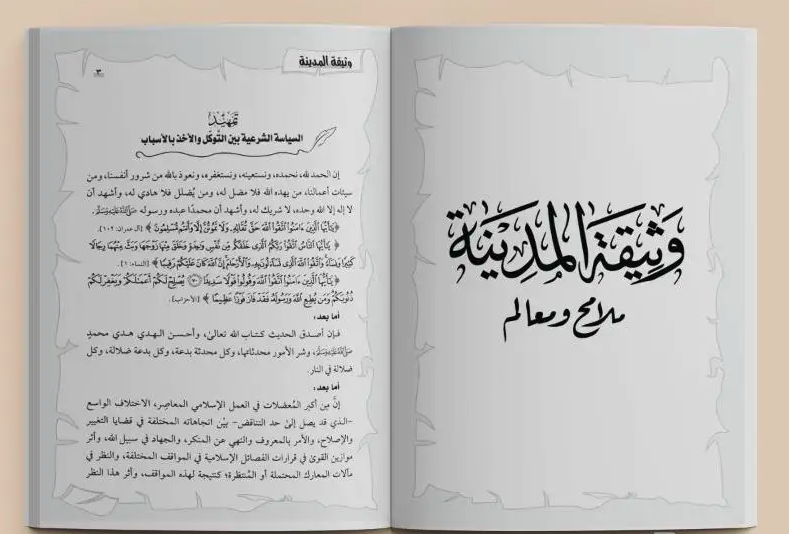 وثيقة المدينة
ملامح ومعالم
وثيقة المدينة
٣
تمهيد
السياسة الشرعية بين التوكل والأخذ بالأسباب
إن الحمد لله، نحمده، ونستعينه، ونستغفره، ونعوذ بالله من شرور أنفسنا، ومن
سيئات أعمالنا، من يهده الله فلا مضل له، ومن يُضلل فلا هادي له، وأشهد أن
لا إله إلا الله وحده، لا شريك له، وأشهد أن محمدًا عبده ورسوله ﷺ.
﴿يَٰٓأَيُّهَا ٱلَّذِينَ ءَامَنُوا۟ ٱتَّقُوا۟ ٱللَّهَ حَقَّ تُقَاتِهِۦ وَلَا تَمُوتُنَّ إِلَّا وَأَنتُم مُّسْلِمُونَ﴾ [آل عمران: ١٠٢].
﴿يَٰٓأَيُّهَا ٱلنَّاسُ ٱتَّقُوا۟ رَبَّكُمُ ٱلَّذِى خَلَقَكُم مِّن نَّفْسٍ وَٰحِدَةٍ وَخَلَقَ مِنْهَا زَوْجَهَا وَبَثَّ مِنْهُمَا رِجَالًا
كَثِيرًا وَنِسَآءً وَٱتَّقُوا۟ ٱللَّهَ ٱلَّذِى تَسَآءَلُونَ بِهِۦ وَٱلْأَرْحَامَ إِنَّ ٱللَّهَ كَانَ عَلَيْكُمْ رَقِيبًا﴾ [النساء: ١].
﴿يَٰٓأَيُّهَا ٱلَّذِينَ ءَامَنُوا۟ ٱتَّقُوا۟ ٱللَّهَ وَقُولُوا۟ قَوْلًا سَدِيدًا ۝٧٠ يُصْلِحْ لَكُمْ أَعْمَٰلَكُمْ وَيَغْفِرْ لَكُمْ
ذُنُوبَكُمْ وَمَن يُطِعِ ٱللَّهَ وَرَسُولَهُۥ فَقَدْ فَازَ فَوْزًا عَظِيمًا﴾ [الأحزاب].
أما بعد:
فإن أصدق الحديث كتاب الله تعالىٰ، وأحسن الهدي هدي محمدٍ
ﷺ، وشر الأمور محدثاتها، وكل محدثة بدعة، وكل بدعة ضلالة، وكل
ضلالة في النار.
أما بعد:
إنَّ مِن أكبر المُعضلات في العمل الإسلامي المعاصِر، الاختلاف الواسع
-الذي قد يصل إلىٰ حد التناقض- بيْن اتجاهاته المختلفة في قضايا التغيير
والإصلاح، والأمر بالمعروف والنهي عن المنكر، والجهاد في سبيل الله، وأثر
موازين القوىٰ في قرارات الفصائل الإسلامية في المواقف المختلفة، والنظر في
مآلات المعارك المحتملة أو المُنتظرة؛ كنتيجة لهذه المواقف، وأثر هذا النظر